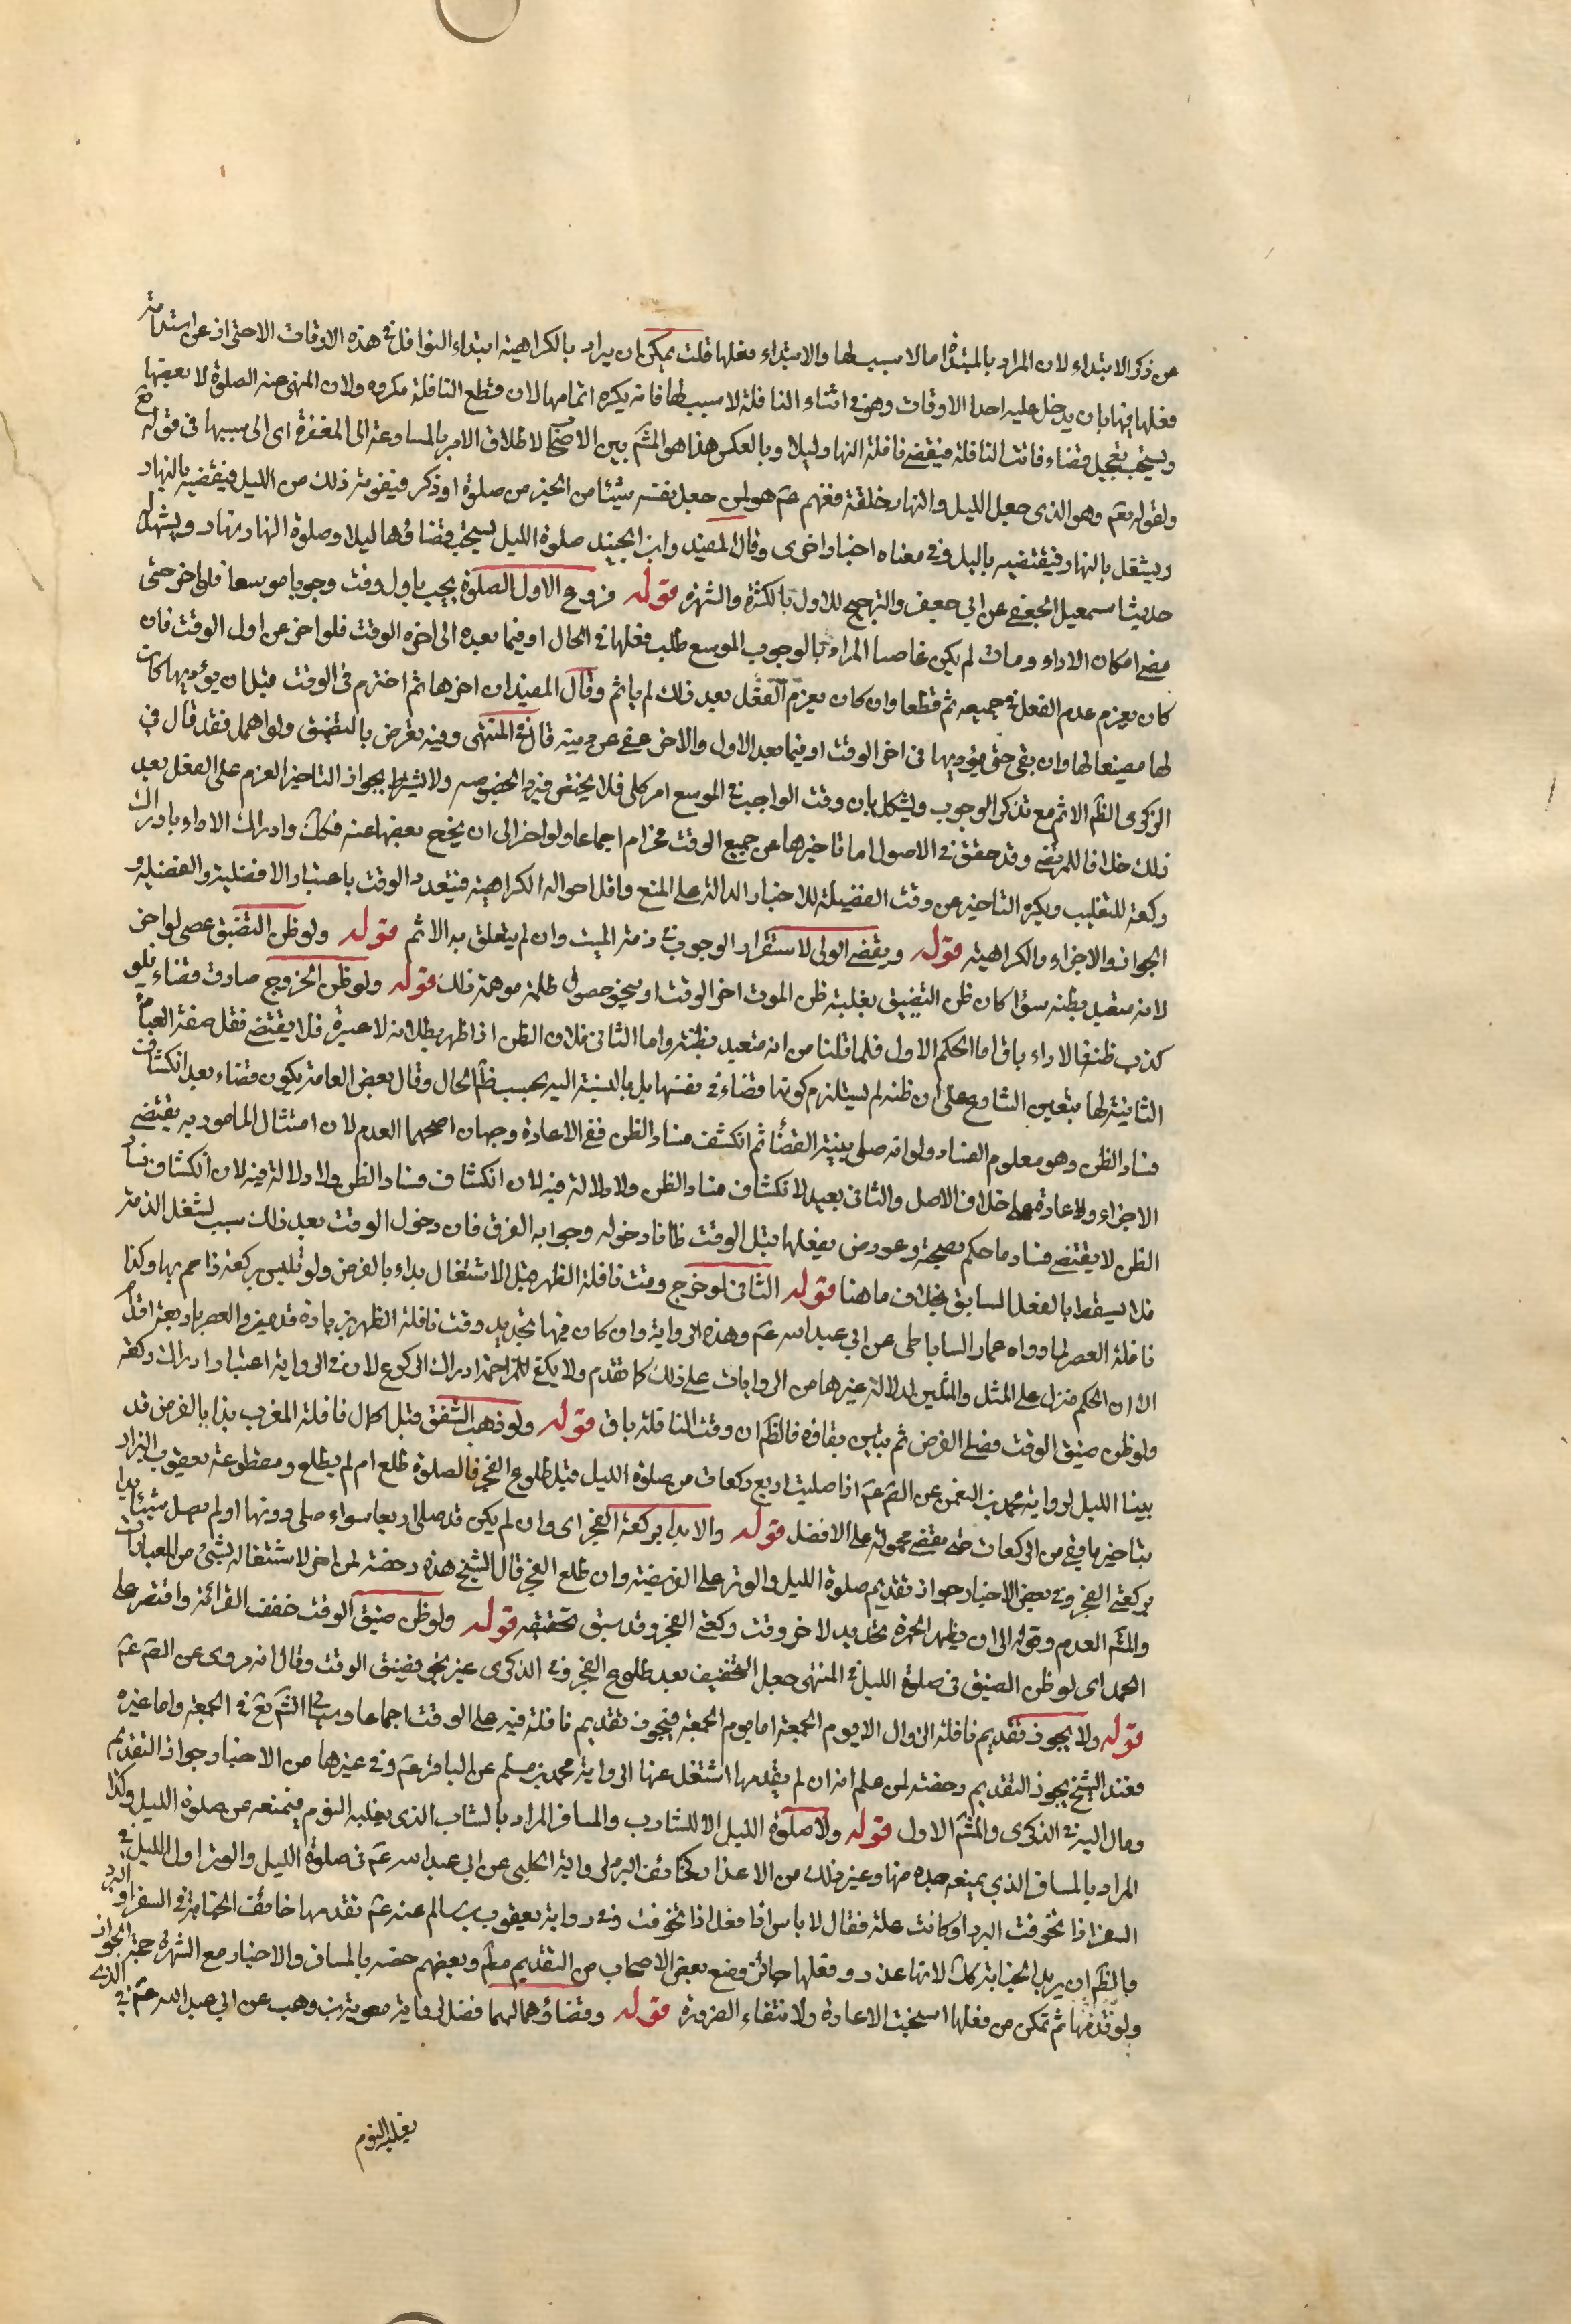 عن ذكر الابتداء لان المراد بالمبتدأة ما لا سبب لها والابتداء فعلها قلت يمكن ان يراد بالكراهية ابتداء النوافل في هذه الاوقات الاحتراز عن استدامة
فعلها فيها بان يدخل عليه احد الاوقات وهو في اثناء النافلة لا سبب لها فانه يكره اتمامها لان قطع النافلة مكروه ولان المنهي عنه الصلوة لا بعضها
ويستحب تعجيل قضاء فائت النافلة فيقضي نافلة النهار ليلا وبالعكس هذا هو المشهم بين الاصحا لاطلاق الامر بالمسارعة الى المغفرة اى الى سببها في قوله تع
ولقوله تعم وهو الذى جعل الليل والنهار خلفة ففهم عم هو لمن جعل نفسه شيئا من الخير من صلوة او ذكر فيفوته ذلك من الليل فيقضيه بالنهار
ويشتغل بالنهار فيقضيه بالليل وفي معناه اخبار اخرى وقال المفيد وابن الجنيد صلوة الليل يستحب قضاؤها ليلا وصلوة النهار نهارا ويشهد له
حديث اسمعيل الجعفي عن ابي جعفر والترجيح للاول بالكثرة والشهرة قوله فروع الاول الصلوة يجب باول وقت وجوبا موسعا فلو اخر حتى
مضى امكان الاداء ومات لم يكن عاصيا المراد بالوجوب الموسع طلب فعلها في الحال او فيما بعده الى اخره الوقت فلو اخر عن اول الوقت فان
كان بعزم عدم الفعل في جميعه اثم قطعا وان كان بعزم الفعل بعد ذلك لم ياثم وقال المفيد ان اخرها ثم اخترم في الوقت قبل ان يؤديها كان
لها مضيعا لها وان بقى حتى يؤديها في اخر الوقت او فيما بعد الاول والاخر عفي عن ذنبه قال في المنتهى وفيه تعرض بالتضيق ولو اهمل فقد قال في
الذكرى الظم الاثم مع تذكر الوجوب ويشكل بان وقت الواجب في الموسع امر كلي فلا يختص فيه بالخصوصه ولا يشترط بجواز التاخير العزم على الفعل بعد
ذلك خلافا للمرتضى وقد حقق في الاصول اما تاخيرها عن جميع الوقت فحرام اجماعا ولو اخر الى ان يخرج بعضها عنه فكك وادراك الاداء بادراك
ركعة للتغليب ويكره التاخير عن وقت الفضيلة للاخبار الدالة على المنع واقل احواله الكراهية فيتعدد الوقت باعتبار الافضلية والفضيلة و
الجواز والاجزاء والكراهية قوله ويقضى الولى لاستقرار الوجوب في ذمة الميت وان لم يتعلق به الاثم قوله ولو ظن التضيق عصى لو اخر
لانه متعبد بظنه سواء كان ظن التضيق بغلبة ظن الموت اخر الوقت او بنحو حصول ظلمة موهمة ذلك قوله ولو ظن الخروج صارت قضاء فلو
كذب ظنه فالاداء باق اما الحكم الاول فلما قلنا من انه متعبد بظنه واما الثانى فلان الظن اذا ظهر بطلانه لا عبرة فلا يقتضى نقل صفة العبا
الثابتة لها بتعين الشارع على ان ظنه لم يستلزم كونها قضاء في نفسها بل بالنسبة اليه بحسب ظم الحال وقال بعض العامة يكون قضاء بعد انكشاف
فساد الظن وهو معلوم الفساد ولو انه صلى بنية القضأ ثم انكشف فساد الظن ففى الاعادة وجهان اصحهما العدم لان امتثال المامور به يقتضى
الاجزاء والاعادة على خلاف الاصل والثانى يعيد لانكشاف فساد الظن ولا دلالة فيه لان انكشاف فساد الظن ولا دلالة فيه لان انكشاف فسا
الظن لا يقتضى فساد ما حكم بصحته وعورض بفعلها قبل الوقت ظانا دخوله وجوابه الفرق فان دخول الوقت بعد ذلك سبب لشغل الذمة
فلا يسقط بالفعل السابق بخلاف ما هنا قوله الثانى لو خرج وقت نافلة الظهر قبل الاشتغال بداء بالفرض ولو تلبس بركعة زاحم بها وكذا
نافلة العصر لما رواه عمار الساباطى عن ابى عبد الله عم وهذه الرواية وان كان فيها تحديد وقت نافلة الظهر بزيادة قدمين والعصر باربعة اقدام
الا ان الحكم منزل على المثل والمثلين لدلالة غيرها من الروايات على ذلك كما تقدم ولا يكفي للمزاحمة ادراك الركوع لان في الرواية اعتبار ادراك ركعة
ولو ظن ضيق الوقت فصلى الفرض ثم تبين بقاؤه فالظم ان وقت النافلة باق قوله ولو ذهب الشفق قبل اكمال نافلة المغرب بدأ بالفرض قد
بينا الليل لرواية محمد بن النعمن عن الصم عم اذا صليت اربع ركعات من صلوة الليل قبل طلوع الفجر فالصلوة طلع ام لم يطلع ومقطوعة يعقوب البزاز
بتاخير ما بقى من الركعات حتى يقضى محمولة على الافضل قوله والا بدأ بركعة الفجر اى وان لم يكن قد صلى اربعا سواء صلى دونها او لم يصل شيئا بدأ
بركعتى الفجر وفي بعض الاخبار جواز تقديم صلوة الليل والوتر على الفريضة وان طلع الفجر قال الشيخ هذه رخصة لمن اخر لاشتغاله بشئ من العبادات
والمشم العدم وقوله الى ان يظهر الحمرة تحديد لاخر وقت ركعتى الفجر وقد سبق تحقيقه قوله ولو ظن ضيق الوقت خفف القرائة واقتصر على
الحمد اى لو ظن الضيق في صلوة الليل في المنتهى جعل التخفيف بعد طلوع الفجر وفي الذكرى عبر بخوف ضيق الوقت وقال انه مروى عن الصم عم
قوله ولا يجوز تقديم نافلة الزوال الا يوم الجمعة اما يوم الجمعة فيجوز تقديم نافلة فيه على الوقت اجماعا وسياتى انش تع في الجمعة واما غيره
فعند الشيخ يجوز التقديم رخصة لمن علم انه ان لم يقدمها اشتغل عنها لرواية محمد بن مسلم عن الباقر عم وفي غيرها من الاخبار جواز التقديم
ومال اليه في الذكرى والمشم الاول قوله ولا صلوة الليل الا للشاب والمسافر المراد بالشاب الذى يغلبه النوم فيمنعه عن صلوة الليل وكذا
المراد بالمسافر الذي يمنعه جده منها وغير ذلك من الاعذار كخائف البرد لرواية الحلبى عن ابى عبد الله عم في صلوة الليل والوتر اول الليل في
السفر اذا تخوفت البرد او كانت علة فقال لا باس انا افعل اذا تخوفت وفي رواية يعقوب بن سالم عنه عم تقدمها خائف الجنابة في السفر او البرد
والظم ان مريد الجنابة كك لانها عذر وفعلها جائز ومنع بعض الاصحاب من التقديم مطم وبعضهم خصه بالمسافر والاخبار مع الشهرة حجة الجواز
ولو قدمها ثم تمكن من فعلها استحبت الاعادة ولانتفاء الضرورة قوله وقضاؤهما لهما فضل لرواية معوية بن وهب عن ابى عبد الله عم في الذى
يغلبه النوم